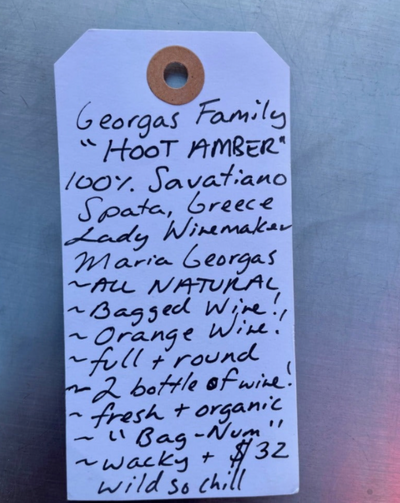 Georgas Family
"HOOT AMBER"
100% Savatiano
Spata, Greece
Lady Winemaker
Maria Georgas
~ALL NATURAL
~Bagged Wine!,
~Orange Wine!
~full + round
~2 bottle of wine!
~fresh + organic
~"Bag-Num"
~wacky + $32
wild so chill